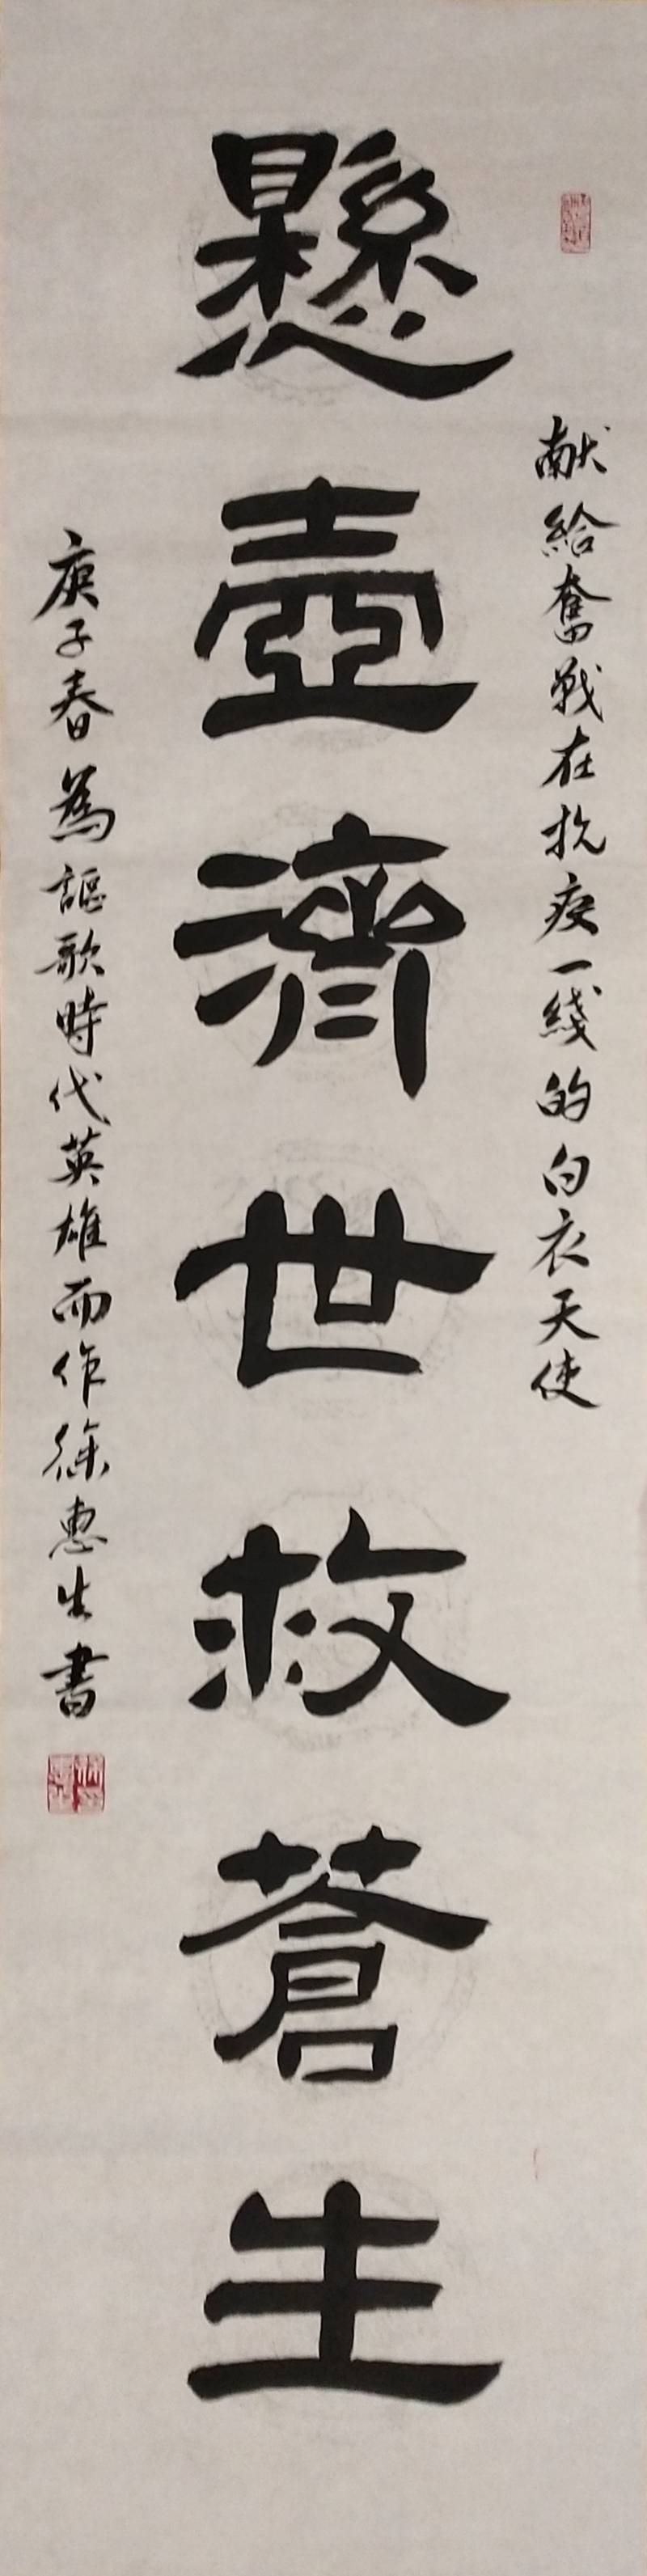 献给奮戰在抗疫一綫的白衣天使
懸壺濟世救蒼生
庚子春為謳歌時代英雄而作徐惠生書